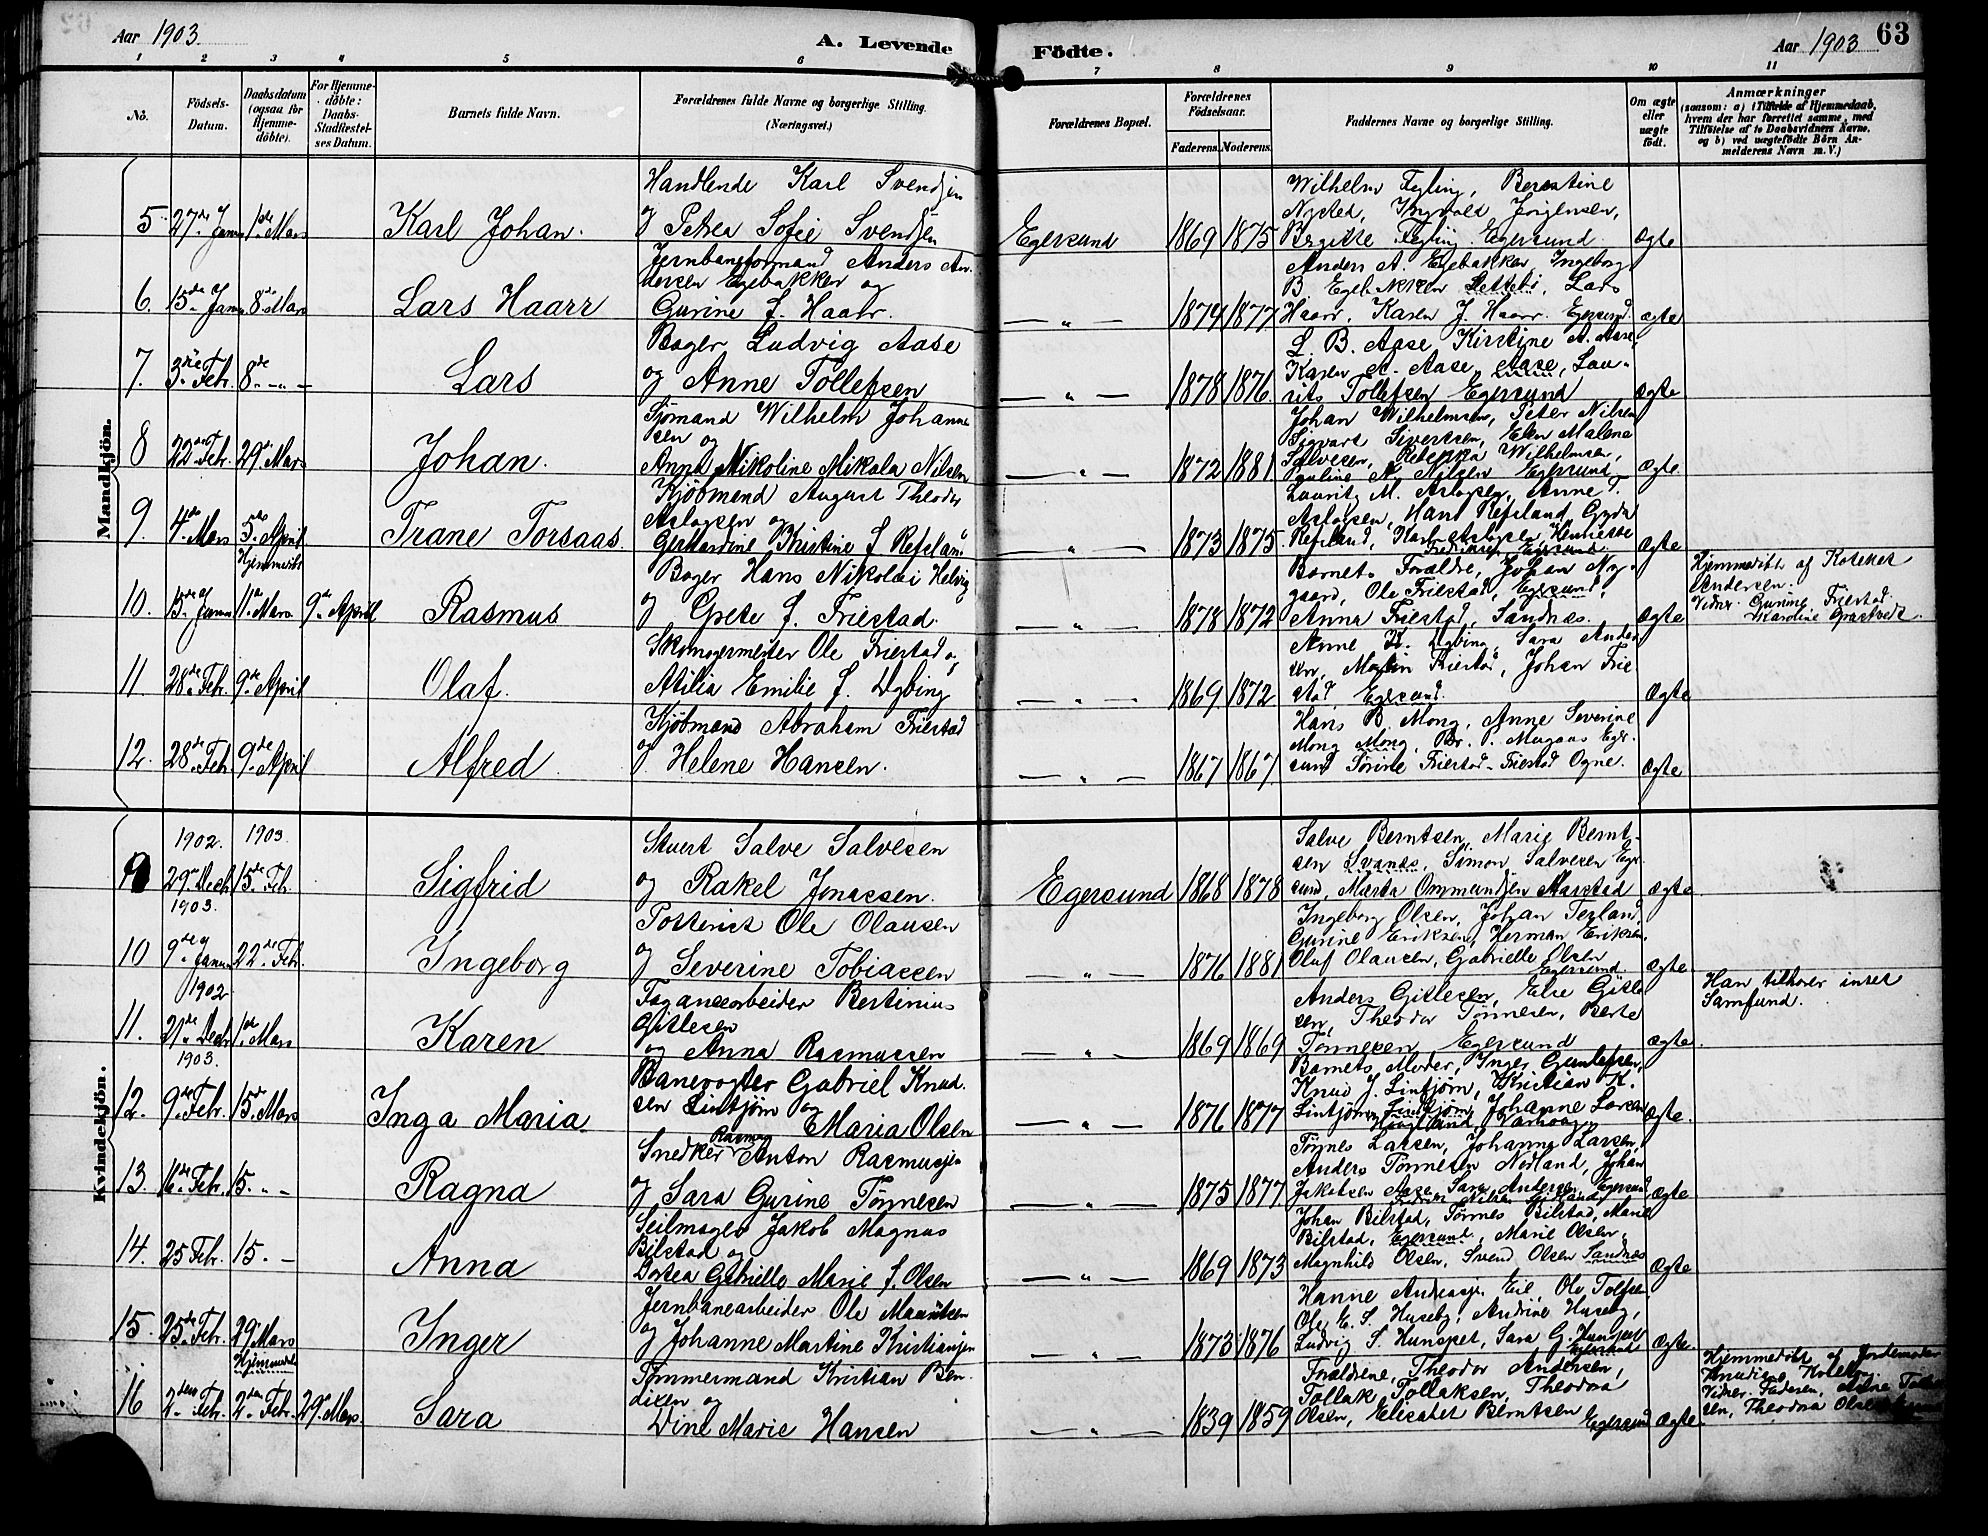 Aar 1903.
A. Levende Födte.
Aar 1903
63
1 2 3 4 5 6 7 8 9 10 11
No.
Födsels-Datum.
Daabsdatum (ogsaa for Hjemme-döbte).
For Hjemme-döbte: Daabs-Stadfæstel-ses Datum.
Barnets fulde Navn.
Forældrenes fulde Navne og borgerlige Stilling. (Næringsvei.)
Forældrenes Bopæl.
Forældrenes Födselsaar.
Faderens. Moderens.
Faddernes Navne og borgerlige Stilling.
Om ægte eller uægte födt.
Anmærkninger
(saasom: a) i Tilfælde af Hjemmedaab,
hvem der har forrettet samme, med
Tilföielse af to Daabsvidners Navne,
og b) ved uægtefödte Börn An-
melderens Navn m. V.)
Mandkjön.
5. 27de Janu 1ste Mars
Karl Johan.
Handlende Karl Svendsen
og Petrea Sofie Svendsen
Egersund
1869 1875
Wilhelm Fegling, Berntine
Nysted, Ingvald Jörgensen,
Birgitte Fegling. Egersund
Ægte
6. 15de Janu 8de Mars
Lars Haarr
Jernbaneformand Anders An-
dersen Egebakken og
Gurine f. Haarr.
— " —
1874 1877
Anders A. Egebakken, Ingeborg
B Egebakken Slettebö, Lars
Haarr, Karen J. Haarr. Egersund.
ægte
7. 3die Febr. 8de — " —
Lars
Bager Ludvig Aase
og Anne Tollefsen
— " —
1878 1876
L. B. Aase Kirstine A. Aase,
Karen A. Aase, Aase, Lau-
rits Tollefsen Egersund
Ægte
8 22de Febr. 29de Mars
Johan.
Sjömand Wilhelm Johanne
sen og
Anna Nikoline Mikala Nilsen
— " —
1872 1881
Johan Wilhelmsen, Peter Nilsen
Sigvart Sivertsen, Elen Malene
Salvesen, Rebekka Wilhelmsen,
Pauline N. Nilsen Egersund
Ægte
9. 4de Mars 5te April
Trane Torsaas.
Kjöbmand August Theodor
Aslagsen og
Gerhardine Kristine f. Refsland
— " —
1873 1875
Laurits M. Aslagsen, Anne T.
Aslagsen, Hans Refsland Gyda
Refsland, Karl Aslagsen, Henriette
Fredriksen Egersund.
Ægte
10. 15de Janu Hjemmedöbt 11te Mars 9de April
Rasmus
Bager Hans Nikolai Helvig
og Grete f. Friestad.
— " —
1878 1872
Barnets Forældre, Johan Ny-
gaard, Ole Friestad, Egersund,
Anna Friestad, Sandnæs.
Ægte
Hjemmedöbt af Kateket
Andersen.
Vidner. Gurine Friestad.
Karoline Graatvedt.
11. 28de Febr. 9de April
Olaf.
Skomagermester Ole Friestad og
Atilia Emilie f. Dybing
— " —
1869 1872
Anne K. Dybing, Sara Ander
sen, Martin Friestad, Johan Frie
stad, Egersund.
Ægte
12. 28de Feb. 9de April
Alfred
Kjöbmand Abraham Friestad
og Helene Hansen.
— " —
1867 1867
Hans B. Mong, Anne Severine
Mong Mong, Br. P. Mugaas Eger-
sund Sörine Friestad. Friestad Ogne.
Ægte
Kvindekjön.
9 1902. 29de Decb 1903. 15de Feb.
Sigfrid
Stuert Salve Salvesen
og Rakel Jonassen.
Egersund
1868 1878
Salve Berntsen, Marie Bernt-
sen Svanes, Simon Salvesen Eger
sund, Marta Ommundsen Maristad
Ægte
10 1903. 9de Janu 22de Febr.
Ingeborg
Potterist Ole Olausen
og Severine Tobiassen
— " —
1876 1881
Ingeborg Olsen, Johan Tesland,
Gurine Eriksen, Herman Eriksen,
Olaf Olausen, Gabrielle Olsen
Egersund.
Ægte
11. 1902 21de Decb 1ste Mars
Karen
Fayancearbeider Bertinius
Gitlesen
og Anna Rasmussen
— " —
1869 1869
Anders Gitlesen, Else Gitle
sen, Theodor Tönnesen, Berte
Tönnesen Egersund
Ægte
Han tilhører intet
Samfund.
12. 1903. 9de Febr. 15de Mars
Inga Maria
Banevogter Gabriel Knud-
sen Lintjörn og
Maria Olsen
— " —
1876 1877
Barnets Moder, Inger Gundersen,
Knud J. Lintjörn, Kristian K.
Lintjörn, Lintjörn, Johanne Larsen
Hougland Varhoug.
Ægte.
13. 16de Febr. 15. " —
Ragna
Snedker Rasmus Anton Rasmussen
og Sara Gurine Tönnesen
— " —
1875 1877
Tönnes Larsen, Johanne Larsen,
Anders Tönnesen Nedland, Johan
Jakobsen Aase, Sara Andersen Egersund
Ægte
14. 25 Febr. 15. —
Anna
Seilmager Jakob Magnus
Bilstad og
Dortea Gabrielle Marie f. Olsen
— " —
1869 1873
Johan Bilstad, Tönnes Bilstad, Marie
Bilstad, Egersund, Marie Olsen,
Magnhild Olsen, Svend Olsen Sandnæs
Ægte
15. 25de Febr. 29de Mars
Inger
Jernbanearbeider Ole Mauritsen
og Johanne Martine Kristiansen
— " —
1873 1876
Hanne Andreasen Eie, Ole Tollefsen
Ole E. S. Huseby, Andrine Huseby,
Ludvig S. Hunspet, Sara G. Hunspet
Egersund
Ægte
16 2den Febr. Hjemmedöbt 2den Febr. 29de Mars
Sara
Tömmermand Kristian Ben-
dixen og
Dine Marie Hansen
— " —
1839 1859
Forældrene, Theodor Andersen,
Tollak Tollaksen, Theodora
Olsen, Elisabet Berntsen Egersund
Ægte
Hjemmedöbt af Jordemoder
Vidner. Faderen,
sen, Theodora Olsen